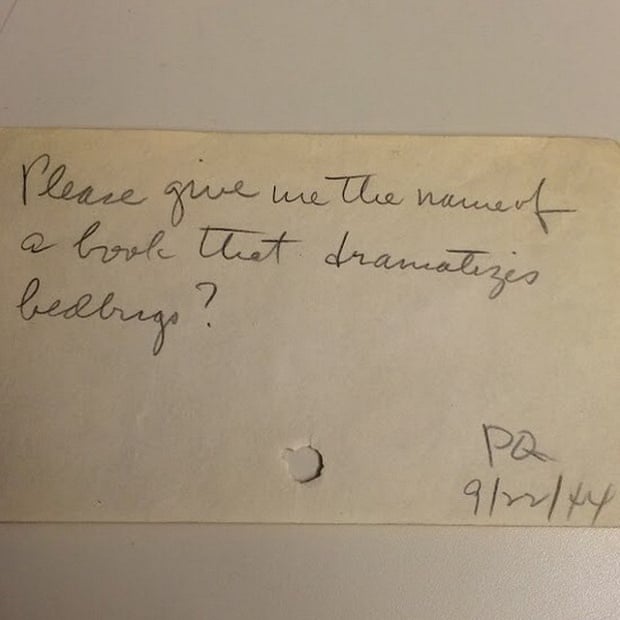 Please give me the name of
a book that dramatizes
bedbugs?
PQ
9/22/44